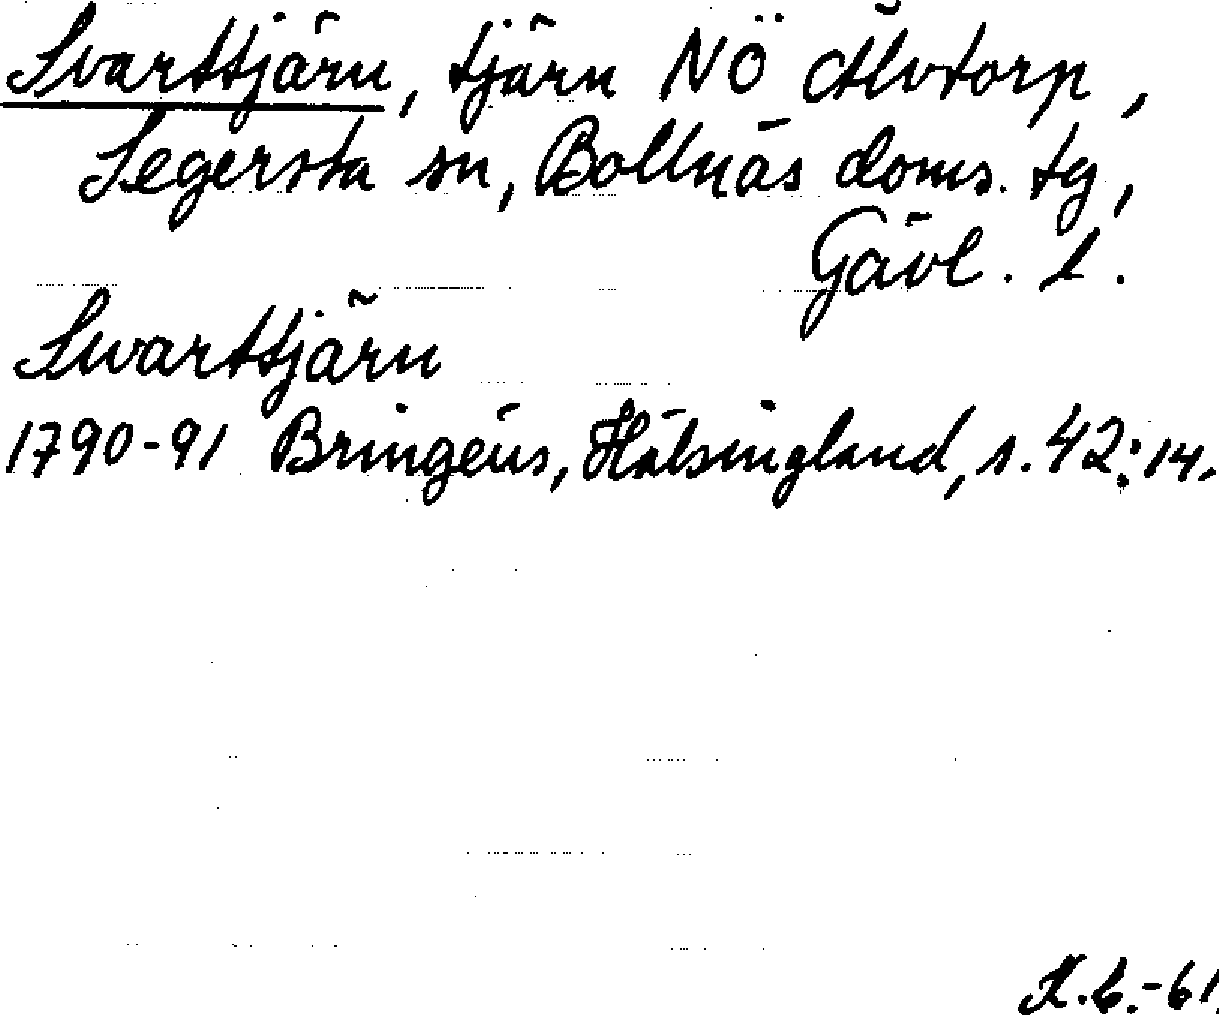 Svarttjärn, tjärn NÖ Älvtorp,
Segersta sn, Bollnäs doms. tg,
Gävl. l.
Swarttjärn
1790-91 Bringéus, Hälsingland, s. 42:14.
K.C.-61.